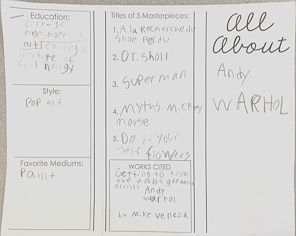 Education:
institute of
Style:
Pop art
Favorite Mediums:
Paint
Titles of 5 Masterpieces:
1. A la Recherche du
Shoe Perdu
2. Dr. Sholl
3. Superman
4. Myths Mickey
mouse
5. Do it your
self flowers
WORKS CITED
Getting to know
the world's greatest
artists
Andy
Warhol
by Mike Venezia
All
About
Andy
WARHOL